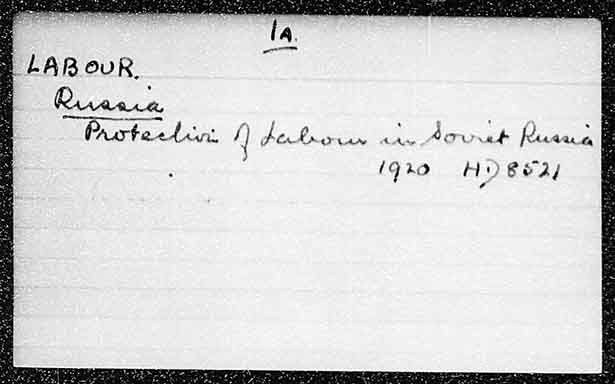 1A.
LABOUR.
Russia
Protection of Labour in Soviet Russia
1920 HD 8521